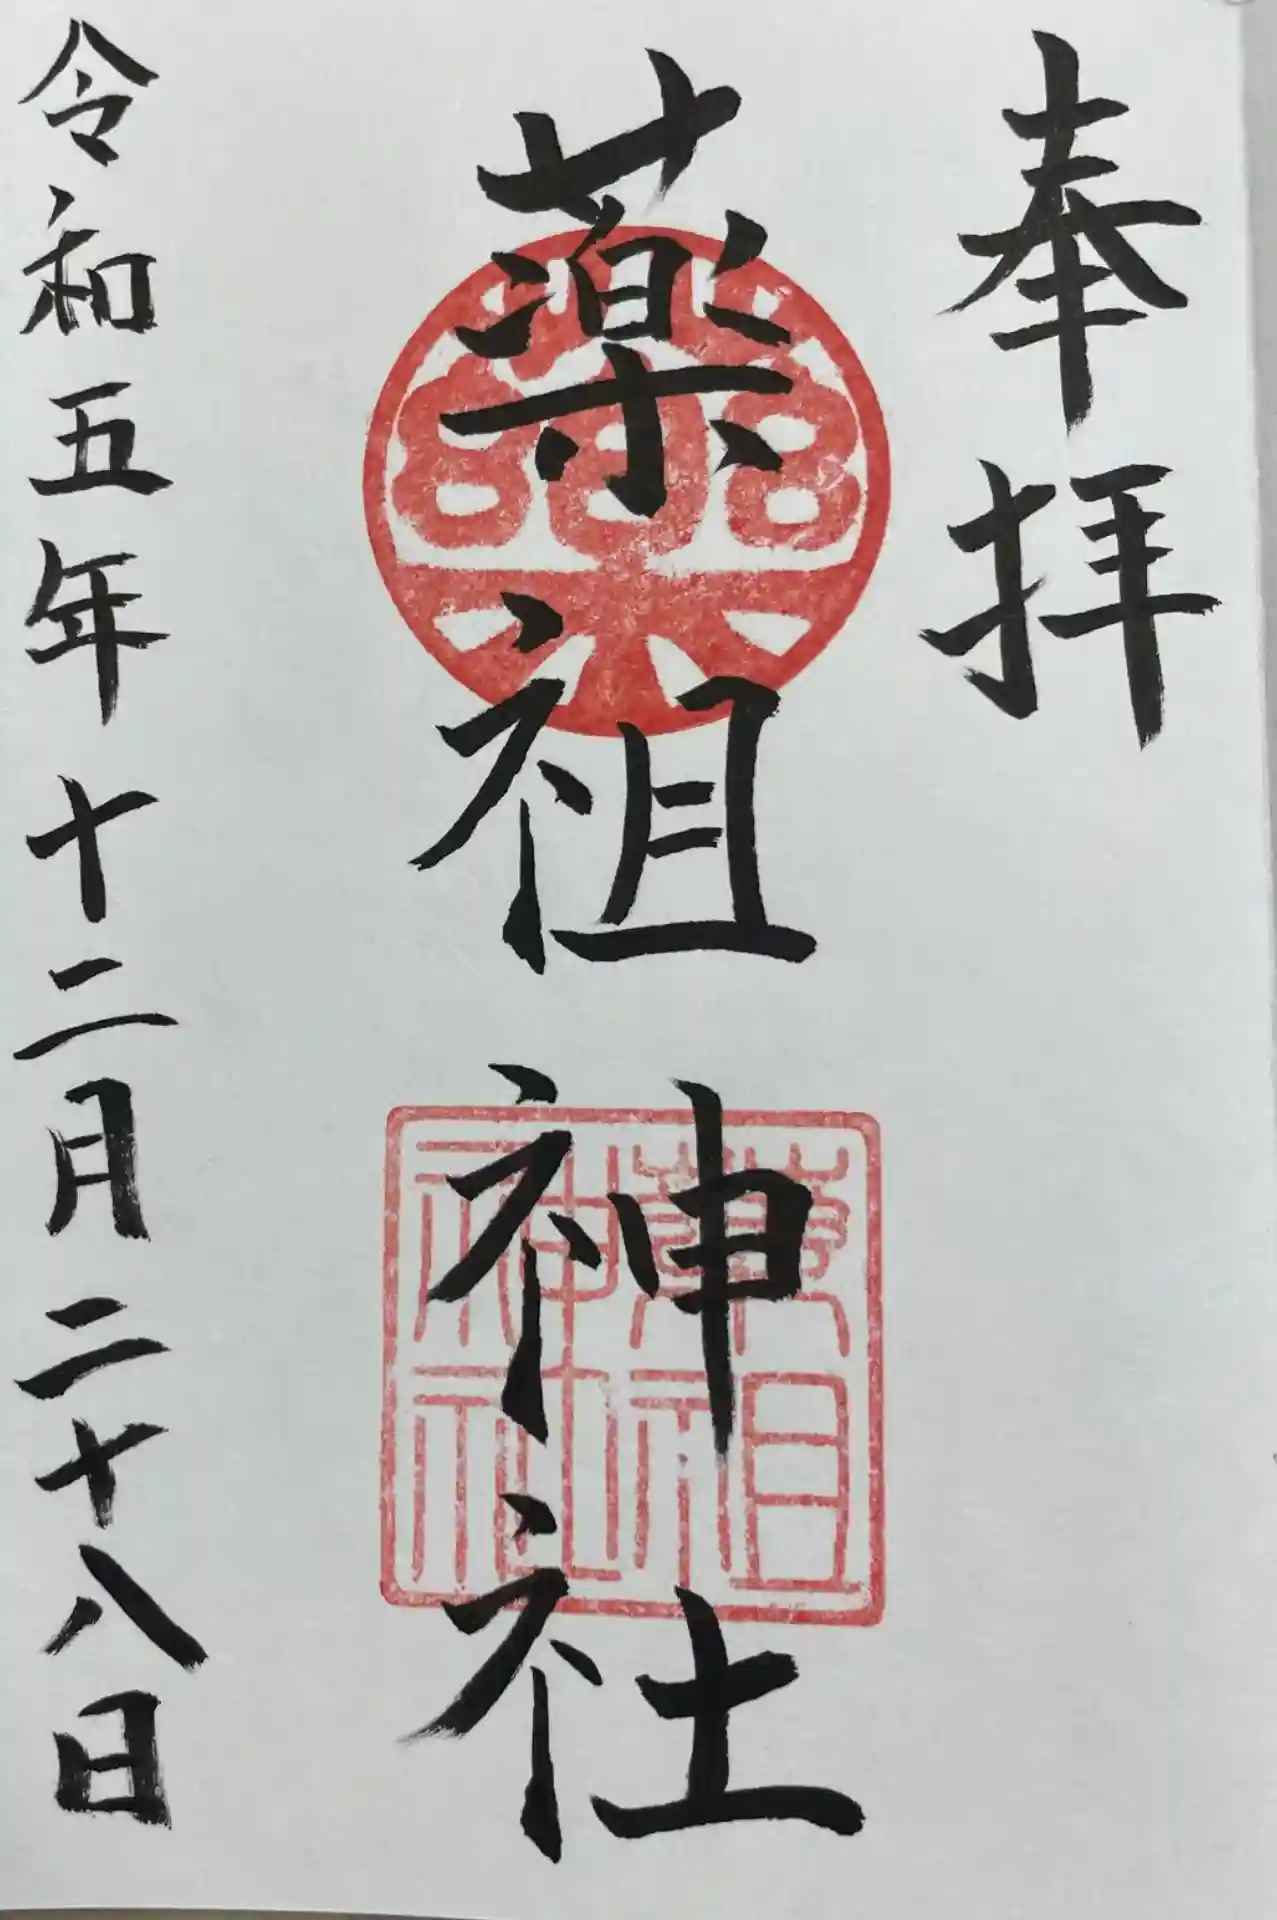 奉拝
薬祖神社
藥祖
神社
令和五年十二月二十八日